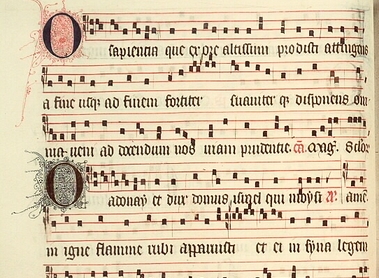 O sapientia que ex ore altissimi prodisti attingens
a fine usq ad finem fortiter suauiter q disponens om
nia ueni ad docendum nos uiam prudentie
O adonay et dux domus israel qui
in igne flamme rubi apparuisti et ei in syna legem